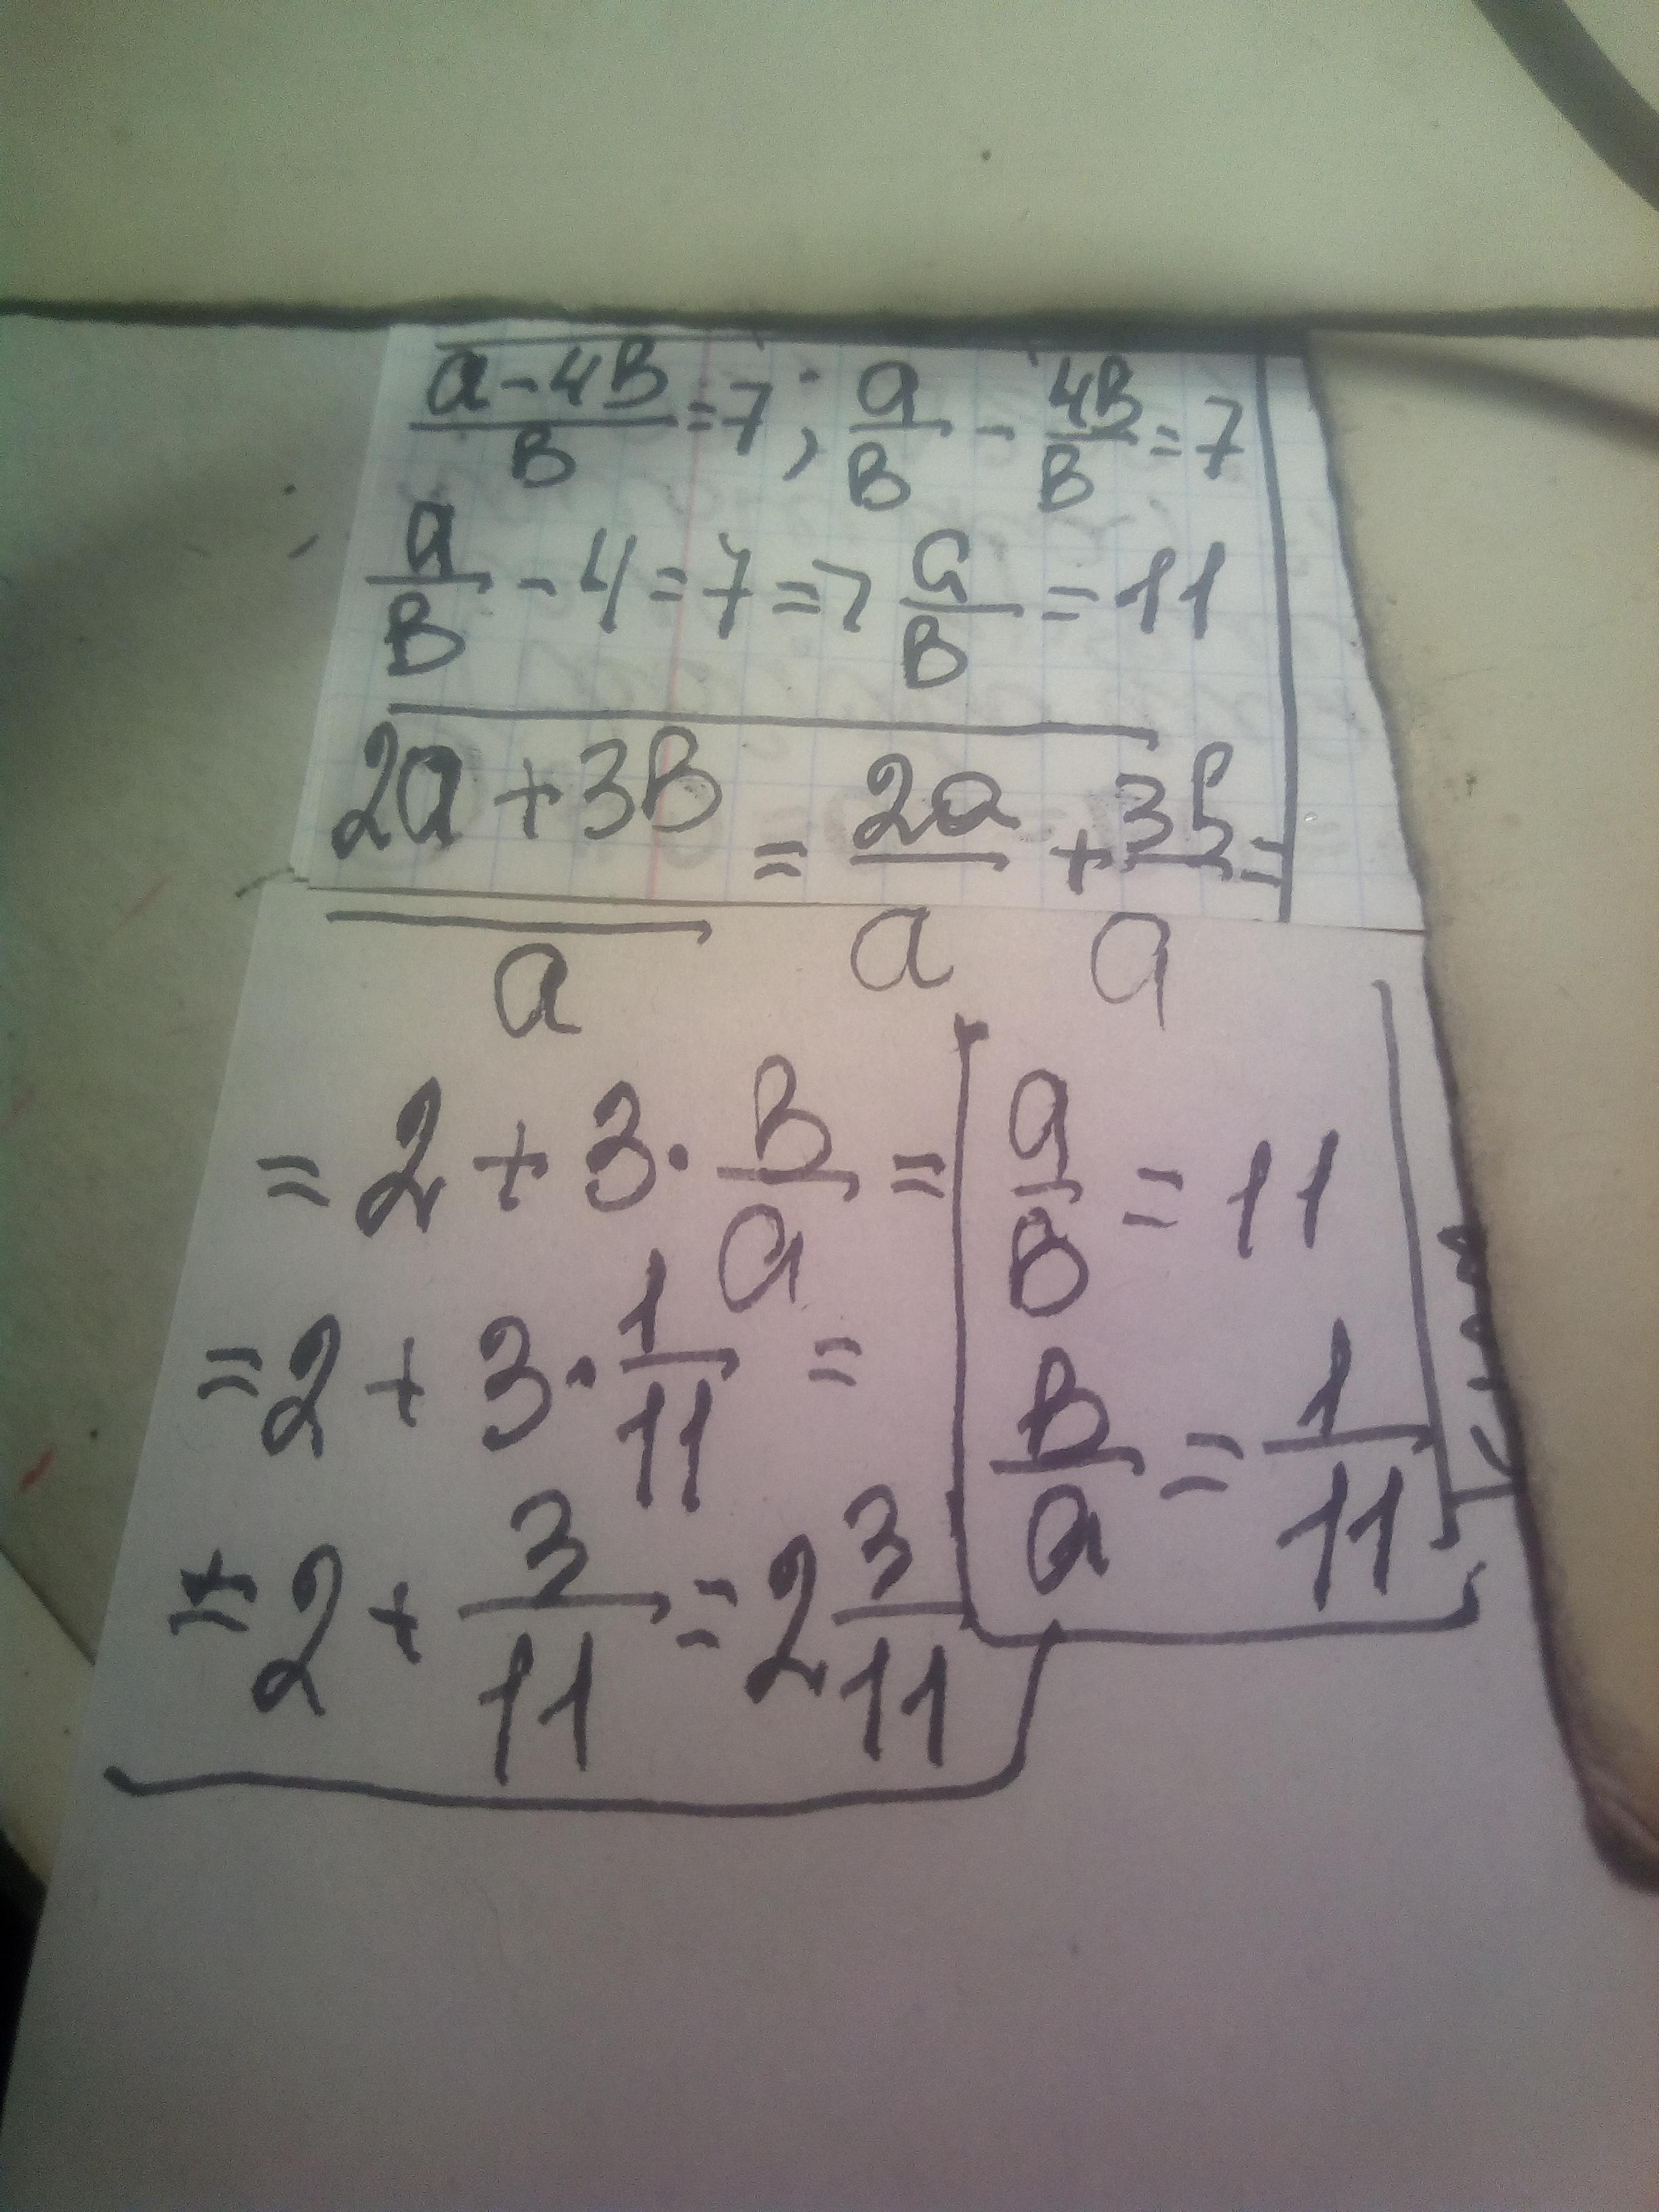 (a-4B)/B=7; a/B-4B/B=7
a/B-4=7=>a/B=11
(2a+3B)/a=2a/a+3B/a=
=2+3·B/a=
=2+3·1/11=
=2+3/11=2 3/11
a/B=11
B/a=1/11